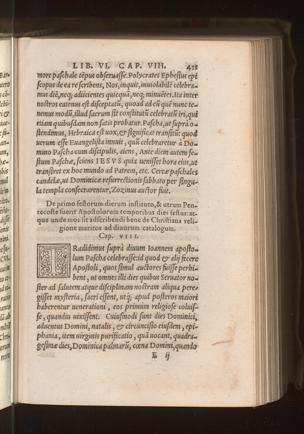 LIB. VI. CAP. VIII. 431
more paschale tēpus obseruasse. Polycrates Ephesius epi
scopus de ea re scribens, Nos, inquit, inuiolabilē celebra-
mus diē, neq; adiicientes quicquā, neq; minuētes. Ita inter
nostros eatenus est disceptatū, quoad ad eū quē nunc te-
nemus modū, illud sacrum sit constitutū celebratū iri, quā
etiam quibusdam non satis probatur. Pascha, ut suprà o-
stendimus, Hebraica est uox, & significat transitū: quod
uerum esse Euangelista innuit, quū celebraretur à Do-
mino Pascha cum discipulis, aiens, Ante diem autem fe-
stum Paschæ, sciens IESVS quia uenisset hora eius, ut
transiret ex hoc mundo ad Patrem, etc. Cereæ paschales
candelæ, ut Dominicæ resurrectionis sabbato per singu-
la templa consecrarentur, Zozimus auctor fuit.
De primo festorum dierum instituto, & utrum Pen-
tecoste fuerit Apostolorum temporibus dies festus: at-
que unde nos sit adscribendi bene de Christiana reli-
gione meritos ad diuorum catalogum.
Cap. VIII.
TRadidimus suprà diuum Ioannem aposto-
lum Pascha celebrasse: id quod & alij fecere
Apostoli, quos simul auctores fuisse perhi-
bent, ut omnes illi dies quibus Seruator no-
ster ad salutem atque disciplinam nostram aliqua pere-
gisset mysteria, sacri essent, utq; apud posteros maiori
haberentur ueneratione, eos primùm religiose coluis-
se, quandiu uixissent. Cuiusmodi sunt dies Dominici,
aduentus Domini, natalis, & circuncisio eiusdem, epi-
phania, item uirginis purificatio, quà uocant, quadra-
gesimæ dies, Dominica palmarū, cœna Domini, quando
ij